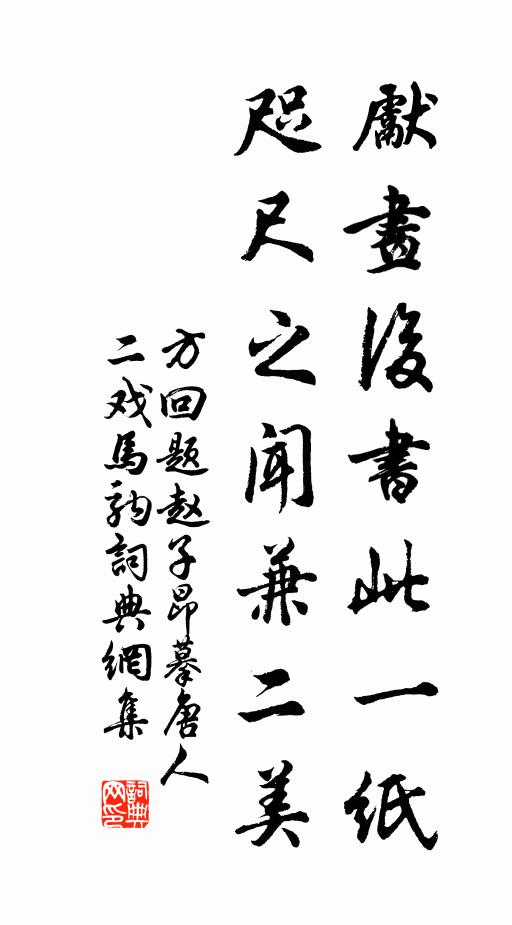 獻畫後書此一紙
咫尺之聞兼二美
方回题赵子昂摹唐人
二戏馬韵詞典網集
詞典网印